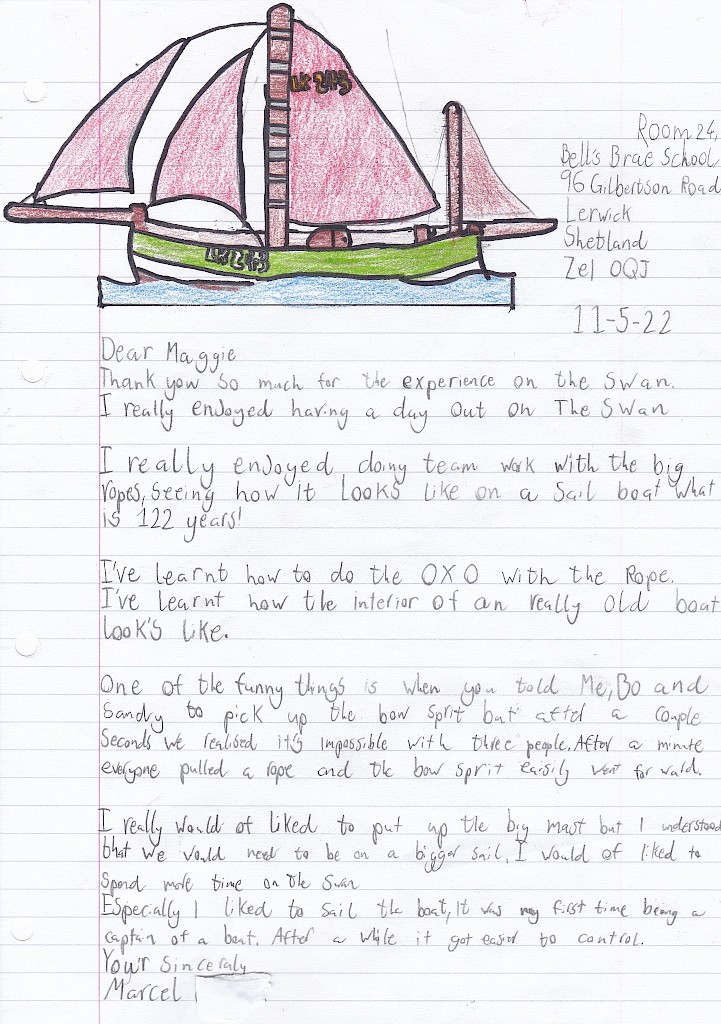 LK 243
LK 243
Room 24,
Bell's Brae School
96 Gilbertson Road
Lerwick
Shetland
Ze1 0QJ
11-5-22
Dear Maggie
Thank you so much for the experience on the Swan.
I really enjoyed having a day out on The Swan
I really enjoyed doing team work with the big
ropes, seeing how it Looks like on a Sail boat what
is 122 years!
I've learnt how to do the OXO with the Rope.
I've learnt how the interior of an really old boat
Look's like.
One of the funny things is when you told Me, Bo and
Sandy to pick up the bow sprit but after a couple
Seconds we realised it's impossible with three people. After a minute
everyone pulled a rope and the bow sprit easily went for ward.
I really would of liked to put up the big mast but I understood
that we would need to be on a bigger sail, I would of liked to
Spend more time on the Swan
Especially I liked to sail the boat, It was my first time being a
captain of a boat. After a while it got easier to control.
You'r Sinceraly
Marcel